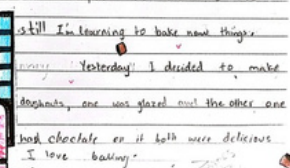 still I'm learning to bake new things.
Yesterday I decided to make
doughnuts, one was glazed and the other one
had choclate on it both were delicious
I love baking.